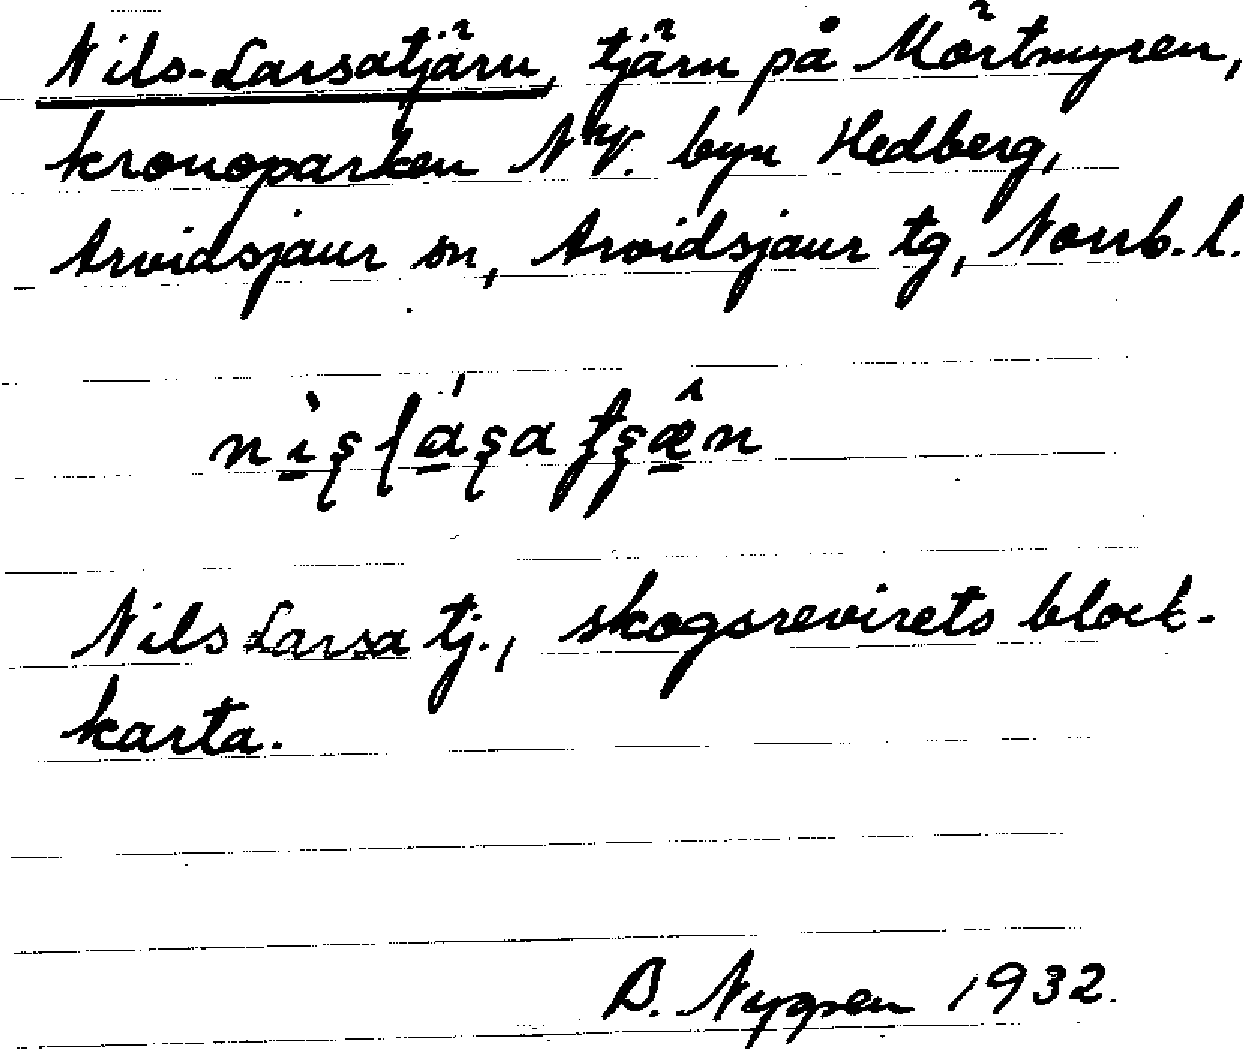 Nils-Larsatjärn, tjärn på Mörtmyren,
kronoparken NV. byn Hedberg,
Arvidsjaur sn, Arvidsjaur tg, Norrb. l.
Nils Larsa tj., skogsrevirets block-
karta.
B. Nygren 1932.